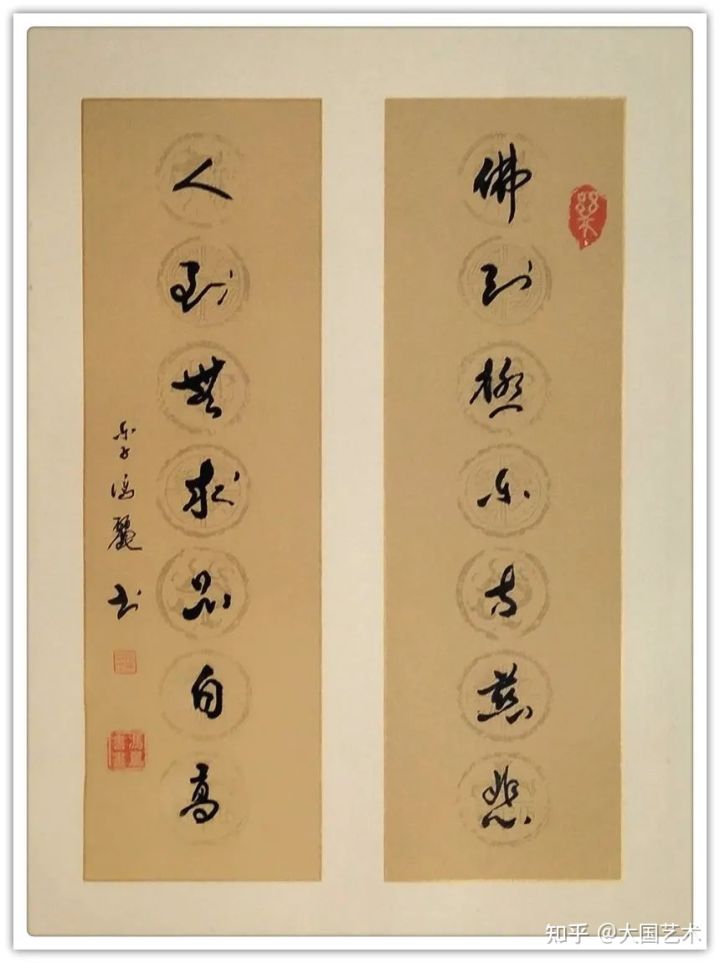 佛到極乐方慈悲
人到無求品自高
乐子馮麗书
知乎 @大国艺术